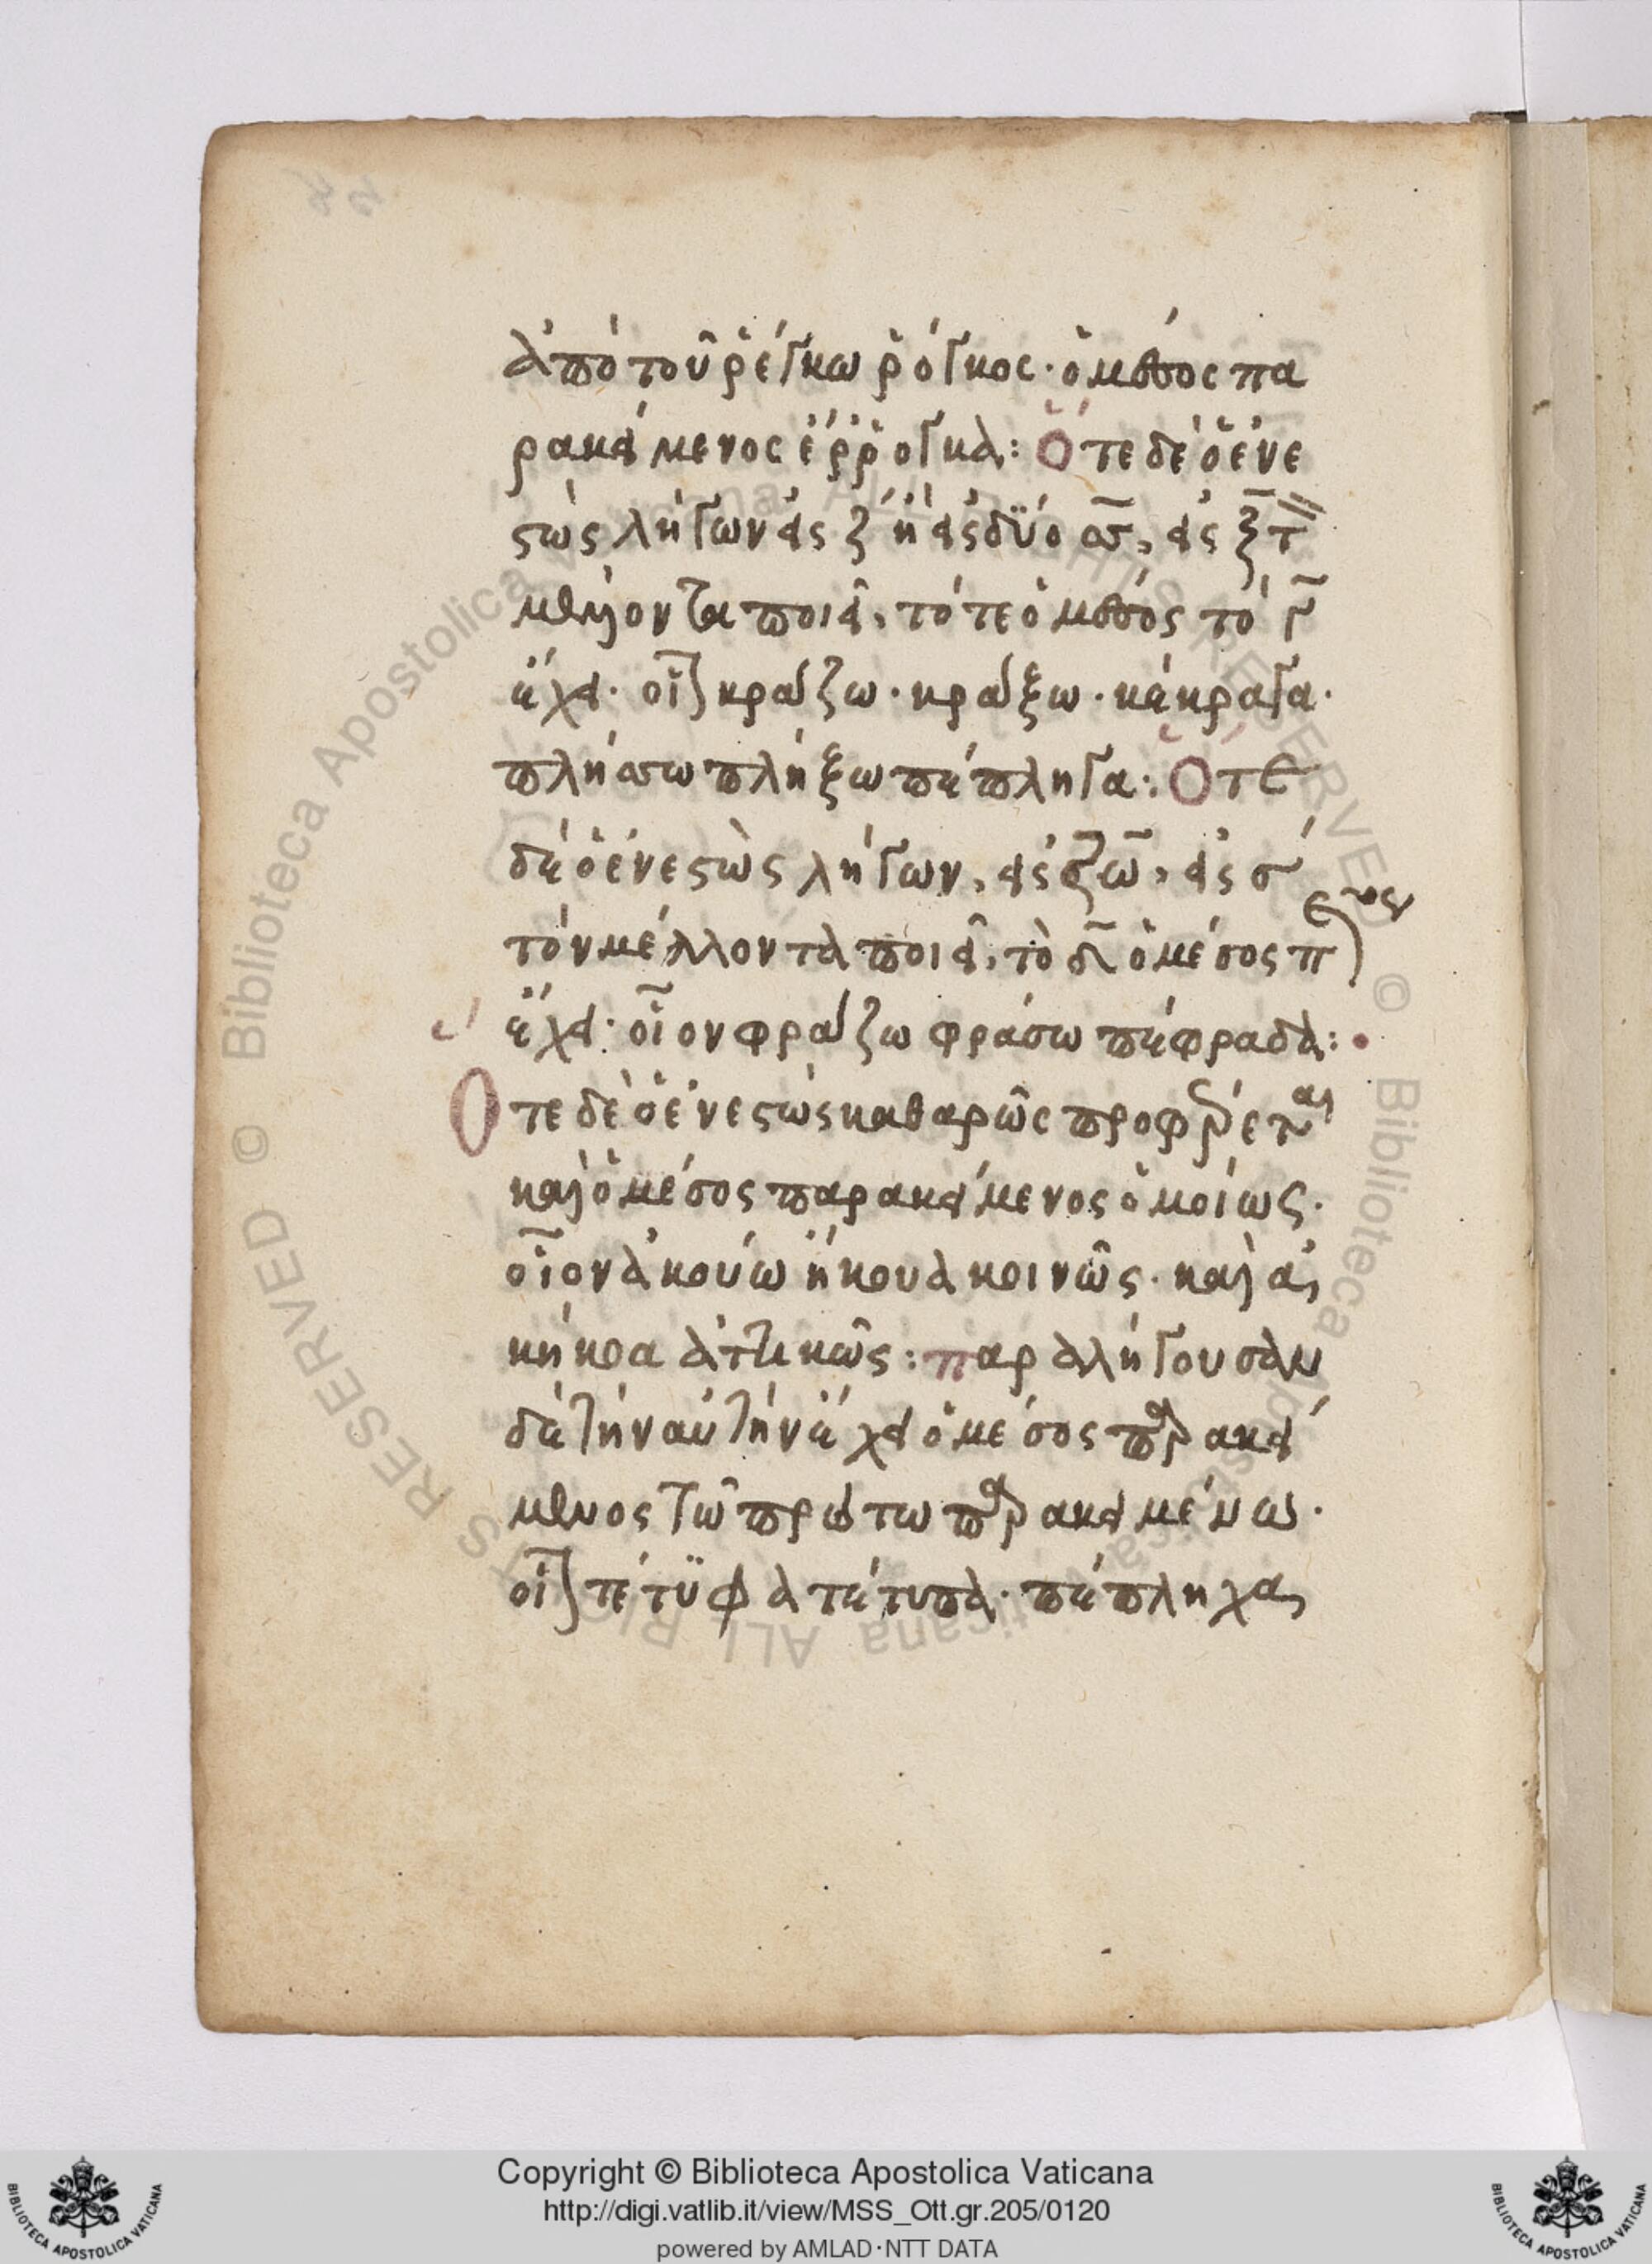 ἀπὸ τοῦ ῥέγκω ῥόγκος· ὁ μέσος πα
ρακείμενος ἔρρογκα: Ὅτε δὲ ὁ ἐνε
στὼς λήγων εἰς ζ ἢ εἰς δύο σσ, εἰς ξ τ
μέλλοντα ποιεῖ, τότε ὁ μέσος τὸ γ
ἔχει· οἷον κράζω· κράξω· κέκραγα·
πλήσσω πλήξω πέπληγα: Ὅτε
δὲ ὁ ἐνεστὼς λήγων, εἰς ζω, εἰς σ
τὸν μέλλοντα ποιεῖ, τὸ δ ὁ μέσος π
ἔχει· οἷον φράζω φράσω πέφραδα:
Ὅτε δὲ ὁ ἐνεστὼς καθαρῶς προφέρεται
καὶ ὁ μέσος παρακείμενος ὁμοίως·
οἷον ἀκούω ἤκουα κοινῶς· καὶ ἀ
κήκοα ἀττικῶς: παραλήγουσαν
δὲ τὴν αὐτὴν ἔχει ὁ μέσος παρακεί
μενος τῶ πρώτω παρακειμένω·
οἷον τέτυφα τέτυπα· πέπληχα
Copyright © Biblioteca Apostolica Vaticana
http://digi.vatlib.it/view/MSS_Ott.gr.205/0120
powered by AMLAD·NTT DATA